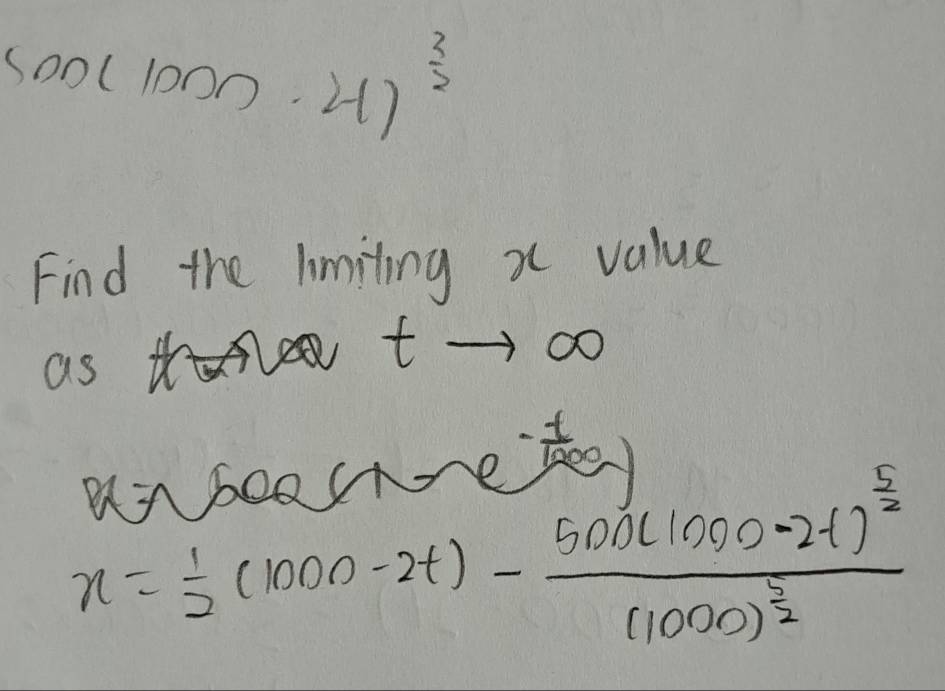 500(1000 - 2t)^{3/2}
Find the limiting x value
as t → ∞
x = 1/2 (1000 - 2t) - 500(1000 - 2t)^{5/2} / (1000)^{5/2}